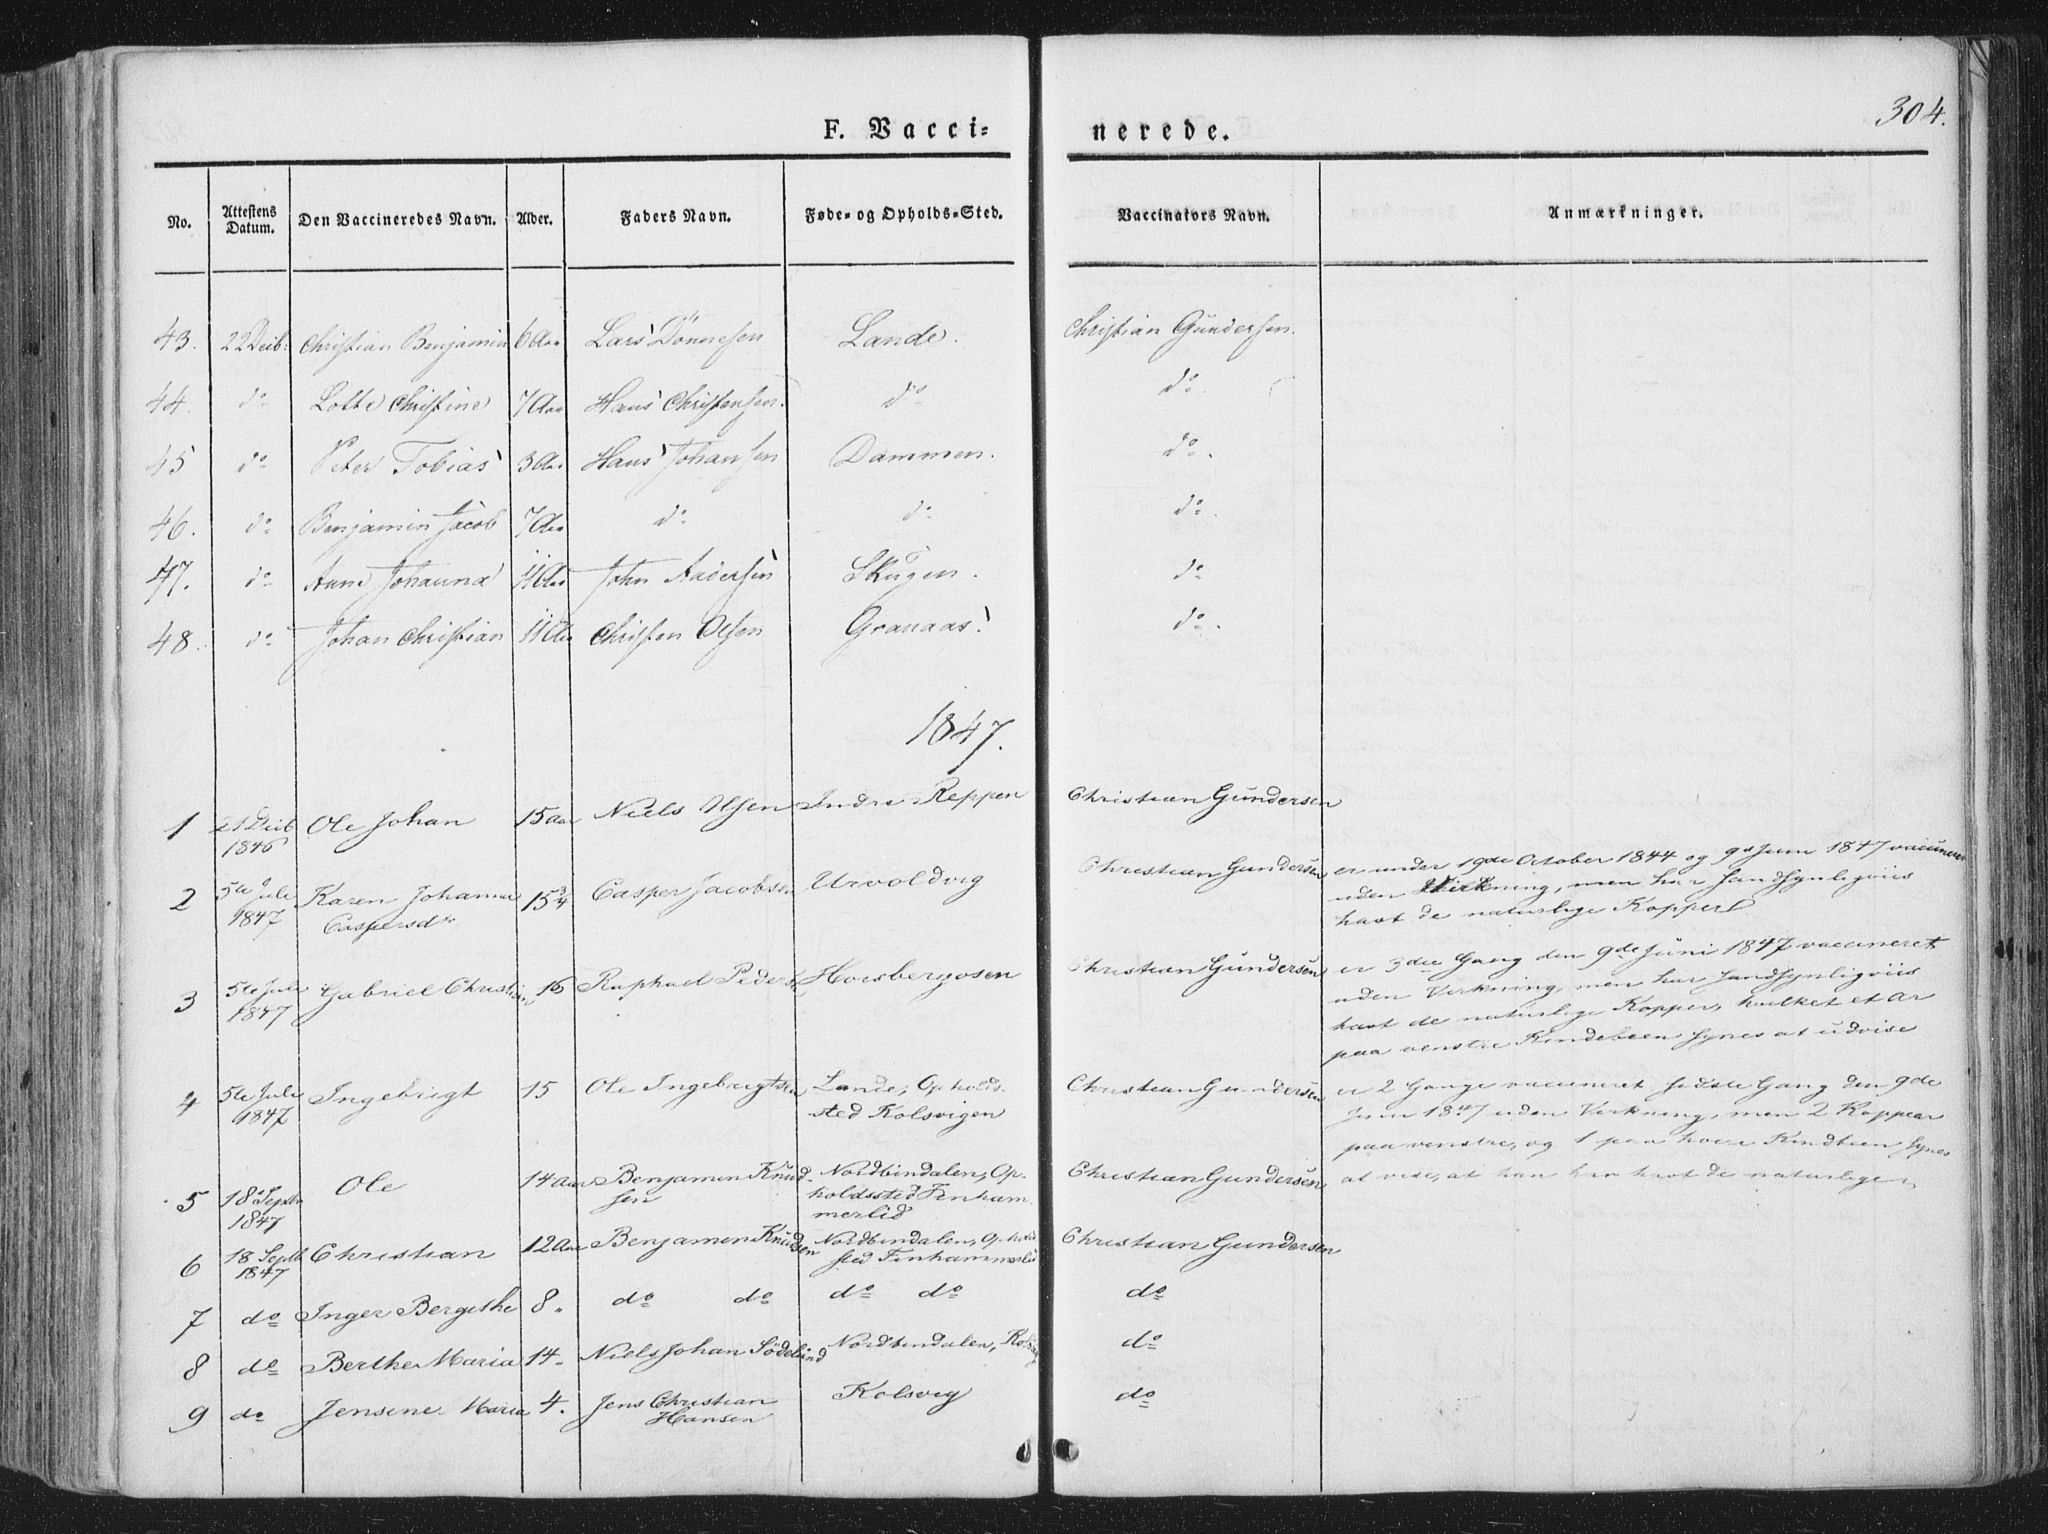 304.
F. Vacci=
nerede.
No.
Attestens Datum.
Den Vaccineredes Navn.
Alder.
Faders Navn.
Føde- og Opholds-Sted.
Vaccinators Navn.
Anmærkninger.
43. 22 Decb: Christian Benjamin 6 Aar Lars Dönnesen Lande. Christian Gundersen.
44. do Lotte Christine 7 Aar Hans Christensen. do do.
45 do Peter Tobias 3 Aar Hans Johansen Dammen. do.
46. do Benjamin Jacob 7 Aar do do do.
47. do Anne Johanna 11 Aar John Andersen Skugen. do
48. do Johan Christian 11 Aar Christen Olsen Granaas. do.
1847.
1 21 Decb 1846 Ole Johan 15 Aar Niels Olsen Indre Reppen Christian Gundersen
2 5te Juli 1847 Karen Johanna Caspersdr 15 3/4 Casper Jacobsen Urvoldvig Christian Gundersen
er under 19de October 1844 og 9d Juni 1847 vaccineret
uden Virkning, men har sandsynligviis
havt de naturlige Kopper
3 5te Juli 1847 Gabriel Christian 16 Raphael Peders Horsbergosen Christian Gundersen
er 3die Gang den 9de Juni 1847 vaccineret
uden Virkning, men har sandsynligviis
havt de naturlige Kopper, hvilket et ar
paa venstre Kindebeen synes at udvise
4 5te Juli 1847 Ingebrigt 15 Ole Ingebrigtsen Lande, Opholds-
sted Kolsvigen Christian Gundersen
er 2 Gange vaccineret sidste Gang den 9de
Juni 1847 uden Virkning, men 2 Koppear
paa venstre, og 1 paa høire Kindbeen synes
at vise, at han har havt de naturlige
5 18 Septr 1847 Ole 14 Aar Benjamin Knud-
sen Nordbindalen, Op-
holdssted Finham-
merlid Christian Gundersen
6 18 Septb 1847 Christian 12 Aar Benjamin Knudsen Nordbindalen, Opholds
sted Finhammerlid Christian Gundersen
7 do Inger Bergithe 8 „ do do do do do
8 do Berthe Maria 14 „ Niels Johan Södelund Nordbindalen, Kolsvig do
9 do Jensine Maria 4. Jens Christian
Hansen Kolsvig do